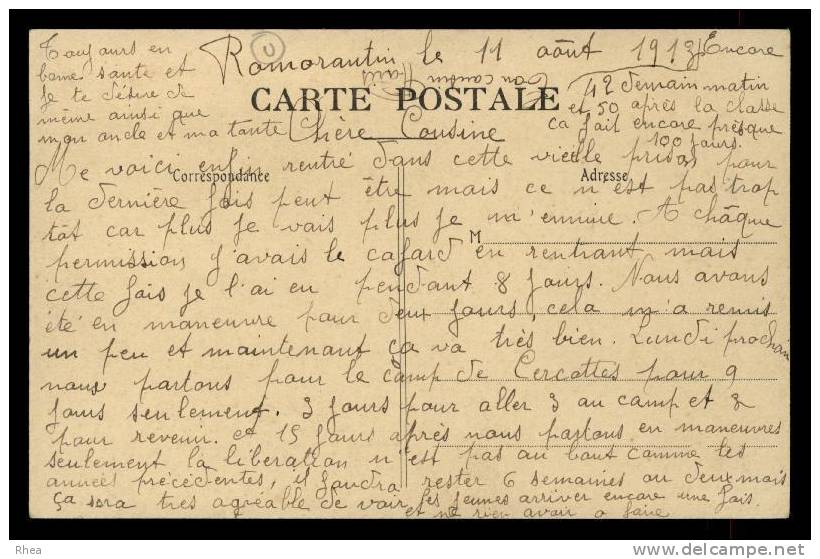 Romorantin le 11 août 1913
Chère Cousine
Me voici enfin rentré dans cette vieille prison pour
la dernière fois peut être mais ce n'est pas trop
tôt car plus je vais plus je m'ennuie. A châque
permission j'avais le cafard en rentrant mais
cette fois je l'ai eu pendant 8 jours. Nous avons
été en maneuvre pour deux jours, cela m'a remis
un peu et maintenant ça va très bien. Lundi prochain
nous partons pour le camp de Cercottes pour 9
jours seulement. 3 jours pour aller 3 au camp et 3
pour revenir. et 15 jours après nous partons en maneuvres
seulement la libération n'est pas au bout comme les
années précédentes, il faudra rester 6 semaines ou deux mois
ça sera très agréable de voir les jeunes arriver encore une fois
et ne rien avoir a faire
Encore
42 demain matin
et 50 après la classe
ca fait encore presque
100 jours.
Toujours en
bonne santé et
je te désire de
même ainsi que
mon oncle et ma tante
Ton cousin
CARTE POSTALE
Correspondance
Adresse
M
Rhea
delcampe.net